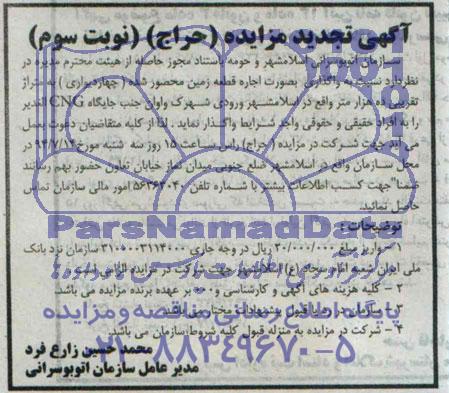 آگهی تجدید مزایده (حراج) (نوبت سوم)
سازمان اتوبوسرانی اسلامشهر و حومه باستناد مجوز حاصله از هیئت محترم مدیره در
نظر دارد نسبت به واگذاری بصورت اجاره قطعه زمین محصور شده (چهاردیواری) به متراژ
تقریبی ده هزار متر واقع در اسلامشهر ورودی شهرک واوان جنب جایگاه CNG الغدیر
را به افراد حقیقی و حقوقی واجد شرایط واگذار نماید. لذا از کلیه متقاضیان دعوت بعمل
می آید جهت شرکت در مزایده (حراج) راس ساعت ۱۵ روز سه شنبه مورخ ۹۴/۷/۱۴ در
محل سازمان واقع در اسلامشهر ضلع جنوبی میدان نماز خیابان تعاون حضور بهم رسانند
ضمنا" جهت کسب اطلاعات بیشتر با شماره تلفن ۵۶۳۶۳۰۴۰ امور مالی سازمان تماس
حاصل نمائید.
توضیحات:
۱- واریز مبلغ ۳۰/۰۰۰/۰۰۰ ریال در وجه جاری ۳۱۰۰۰۰۳۱۱۴۰۰۰ سازمان نزد بانک
ملی ایران شعبه امام سجاد (ع) اسلامشهر جهت شرکت در مزایده الزامی است.
۲- کلیه هزینه های آگهی و کارشناسی و... بر عهده برنده مزایده می باشد.
۳- سازمان در رد یا قبول پیشنهادات مختار می باشد.
۴- شرکت در مزایده به منزله قبول کلیه شروط سازمان می باشد.
محمد حسین زارع فرد
مدیر عامل سازمان اتوبوسرانی
ParsNamadData
پایگاه اطلاع رسانی مناقصه و مزایده
۰۲۱-۸۸۳۴۹۶۷۰-۵